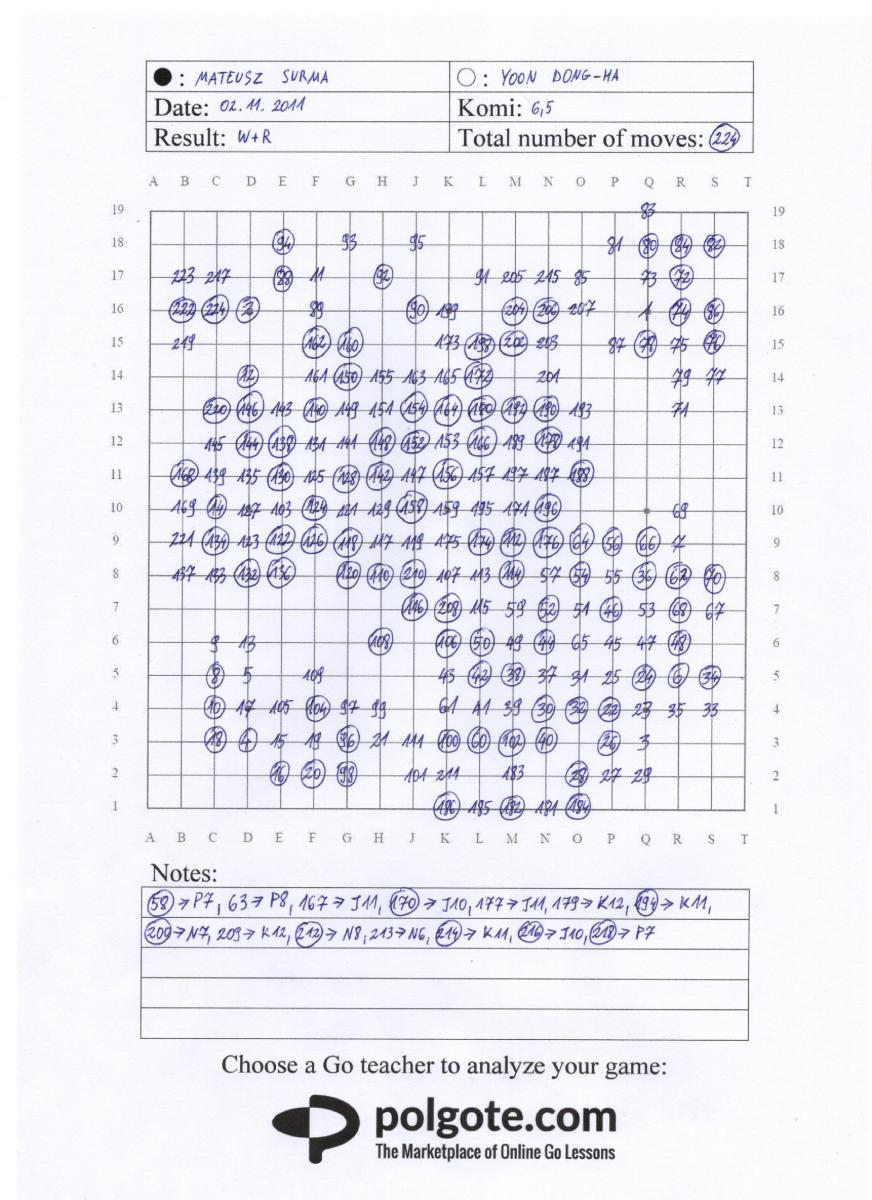 ● : MATEUSZ SURMA ○ : YOON DONG-HA
Date: 02.11.2011 Komi: 6,5
Result: W+R Total number of moves: 224
A B C D E F G H J K L M N O P Q R S T
19 83 19
18 94 93 95 81 80 84 82 18
17 223 217 88 11 92 91 205 215 85 73 72 17
16 222 224 2 89 90 199 204 206 207 1 74 86 16
15 219 162 160 173 198 202 203 87 78 75 76 15
14 12 161 150 155 163 165 172 201 79 77 14
13 220 146 143 140 149 151 154 164 180 192 190 193 71 13
12 145 144 138 131 141 148 152 153 166 189 178 191 12
11 168 139 135 130 125 128 142 147 156 157 197 187 188 11
10 169 14 127 103 124 121 129 158 159 195 171 196 69 10
9 221 134 123 122 126 118 117 119 175 174 112 176 64 56 66 7 9
8 137 133 132 136 120 110 210 107 113 114 57 54 55 36 62 70 8
7 116 208 115 59 52 51 46 53 68 67 7
6 9 13 108 106 50 49 44 65 45 47 48 6
5 8 5 109 43 42 38 37 31 25 24 6 34 5
4 10 17 105 104 97 99 61 41 39 30 32 22 23 35 33 4
3 18 4 15 19 96 21 111 100 60 102 40 26 3 3
2 16 20 98 101 211 183 28 27 29 2
1 186 185 182 181 184 1
A B C D E F G H J K L M N O P Q R S T
Notes:
58 → P7, 63 → P8, 167 → J11, 170 → J10, 177 → J11, 179 → K12, 194 → K11,
200 → N7, 209 → K12, 212 → N8, 213 → N6, 214 → K11, 216 → J10, 218 → P7
Choose a Go teacher to analyze your game:
polgote.com
The Marketplace of Online Go Lessons